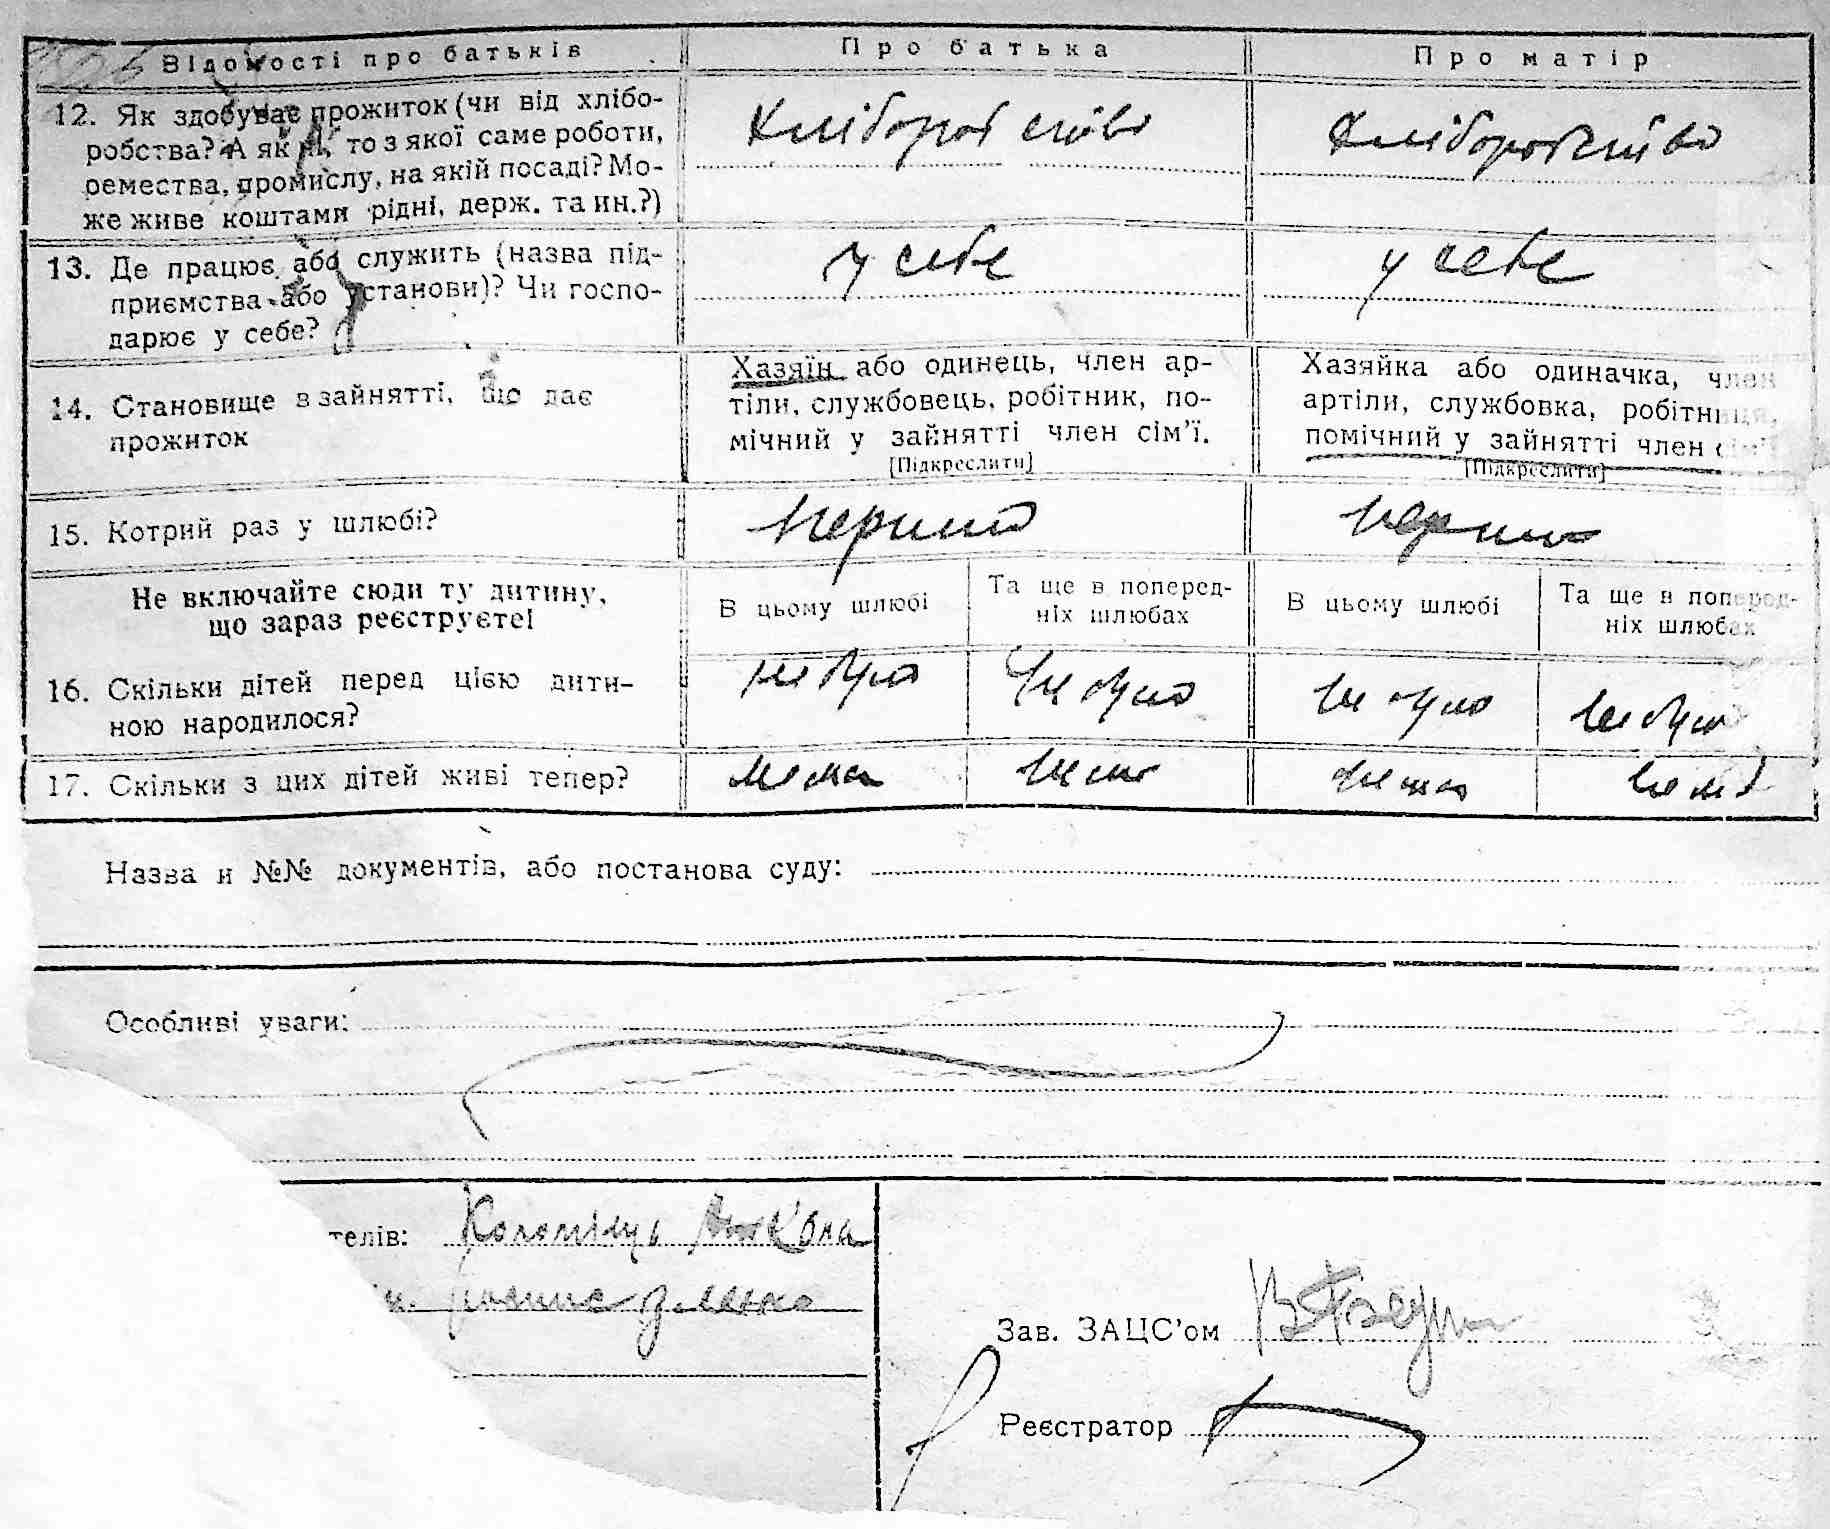 Відомості про батьків
Про батька
Про матір
12. Як здобуває прожиток (чи від хлібо-
робства? А як ні, то з якої саме роботи,
ремества, промислу, на якій посаді? Мо-
же живе коштами рідні, держ. та ин.?)
Хліборобство
Хліборобство
13. Де працює або служить (назва під-
приємства або установи)? Чи госпо-
дарює у себе?
у себе
у себе
14. Становище в зайнятті, що дає
прожиток
Хазяїн або одинець, член ар-
тіли, службовець, робітник, по-
мічний у зайнятті член сім'ї.
[Підкреслити]
Хазяйка або одиначка, член
артіли, службовка, робітниця,
помічний у зайнятті член сім'ї
[Підкреслити]
15. Котрий раз у шлюбі?
перший
перший
Не включайте сюди ту дитину,
що зараз реєструєте!
В цьому шлюбі
Та ще в поперед-
ніх шлюбах
В цьому шлюбі
Та ще в поперед-
ніх шлюбах
16. Скільки дітей перед цією дити-
ною народилося?
не було
не було
не було
не було
17. Скільки з цих дітей живі тепер?
нема
нема
нема
нема
Назва и №№ документів, або постанова суду:
Особливі уваги:
телів: Коломієць
Зав. ЗАЦС'ом
Реєстратор